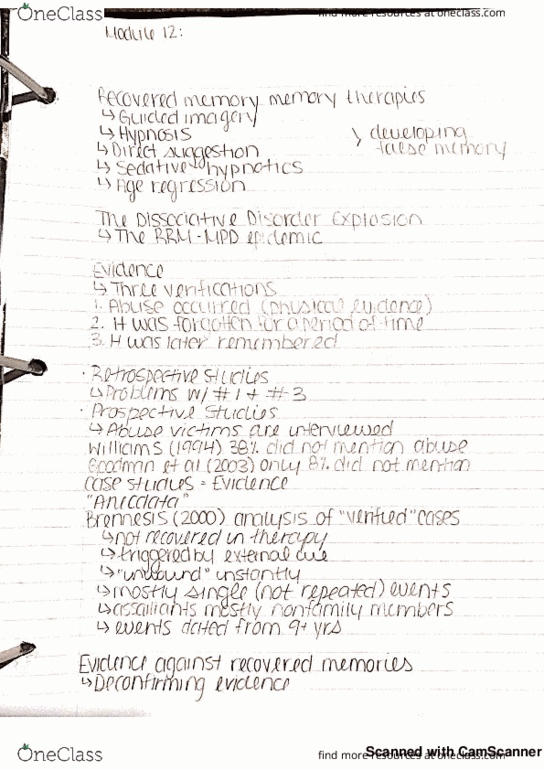 OneClass
find more resources at oneclass.com
Module 12:
Recovered memory memory therapies
↳ Guided imagery
↳ Hypnosis
↳ Direct suggestion
↳ Sedative hypnotics
↳ Age regression
> developing
false memory
The Dissociative Disorder Explosion
↳ The RRM-MPD epidemic
Evidence
↳ Three verifications
1. Abuse occurred (physical evidence)
2. It was forgotten for a period of time
3. It was later remembered
· Retrospective studies
↳ Problems w/ #1 + #3
· Prospective studies
↳ Abuse victims are interviewed
Williams (1994) 38% did not mention abuse
Goodman et al (2003) only 8% did not mention
case studies = Evidence
"Anecdata"
Brennesis (2000) analysis of "verified" cases
↳ not recovered in therapy
↳ triggered by external cue
↳ "unwound" instantly
↳ mostly single (not repeated) events
↳ assailants mostly nonfamily members
↳ events dated from 9+ yrs
Evidence against recovered memories
↳ Deconfirming evidence
OneClass
find more resources at oneclass.com
Scanned with CamScanner